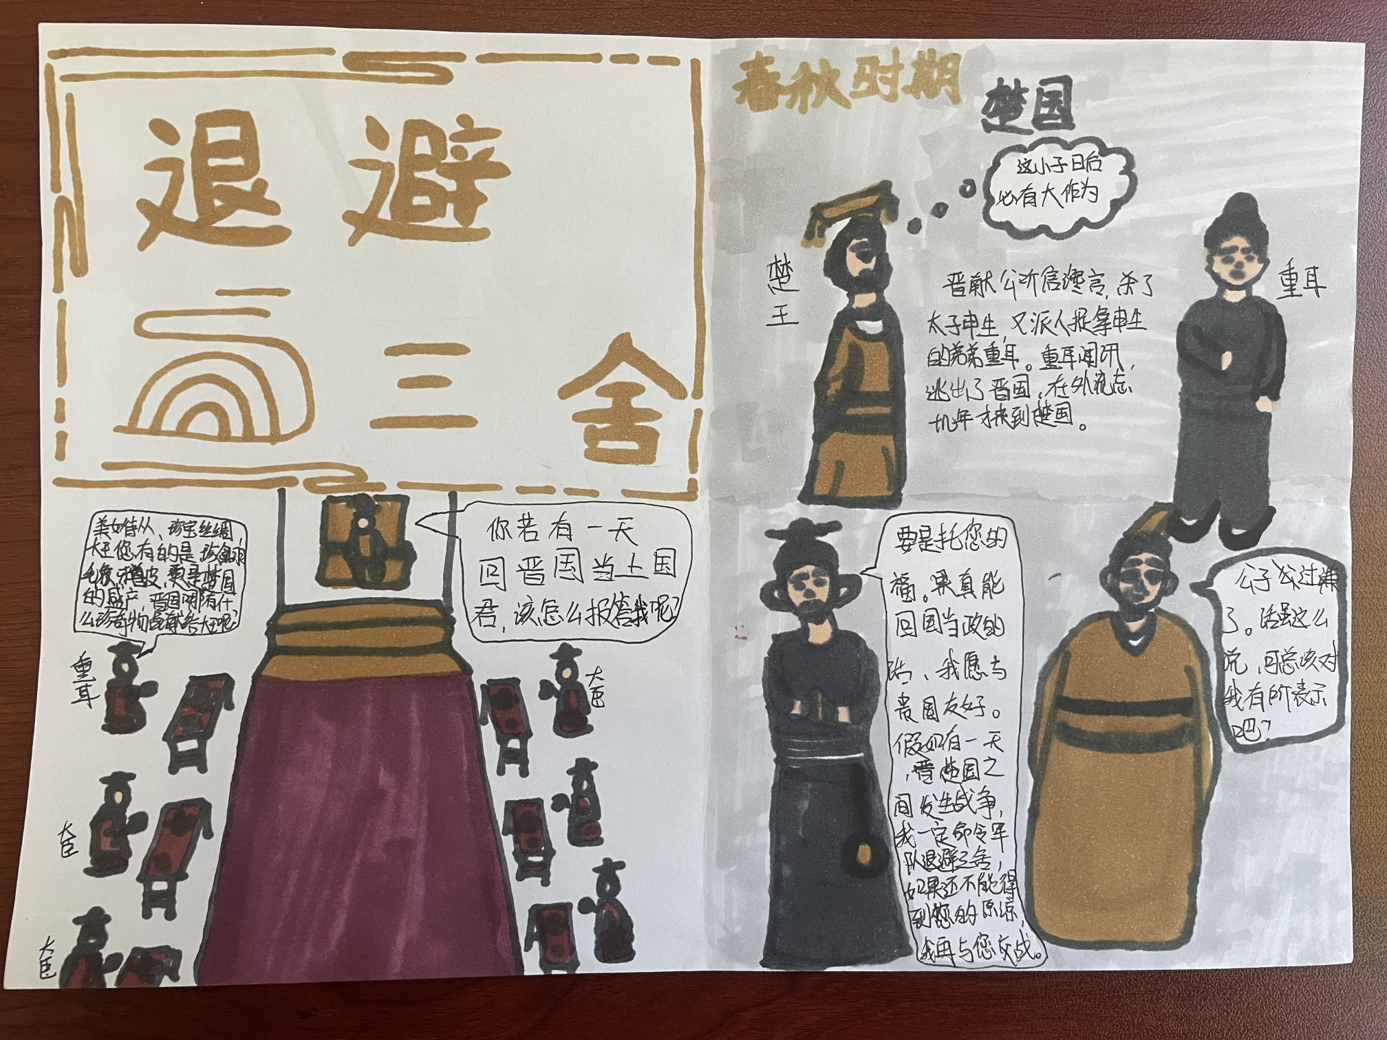 退避
三舍
春秋时期
楚国
这小子日后
必有大作为
楚
王
重耳
晋献公听信谗言,杀了
太子申生,又派人捉拿申生
的弟弟重耳。重耳闻讯,
逃出了晋国,在外流亡
十九年才来到楚国。
你若有一天
回晋国当上国
君,该怎么报答我呢?
美女侍从、珍宝丝绸,
大王您有的是
的盛产,晋国哪有什
么珍奇物品献给大王呢?
重
耳
大
臣
大
臣
大
臣
要是托您的
福。果真能
回国当政的
话、我愿与
贵国友好。
假如有一天
,晋楚国之
间发生战争,
我一定命令军
队退避三舍,
如果还不能得
到您的原谅,
我再与您交战。
公子过谦
了。话虽这么
说,可总该对
我有所表示
吧?